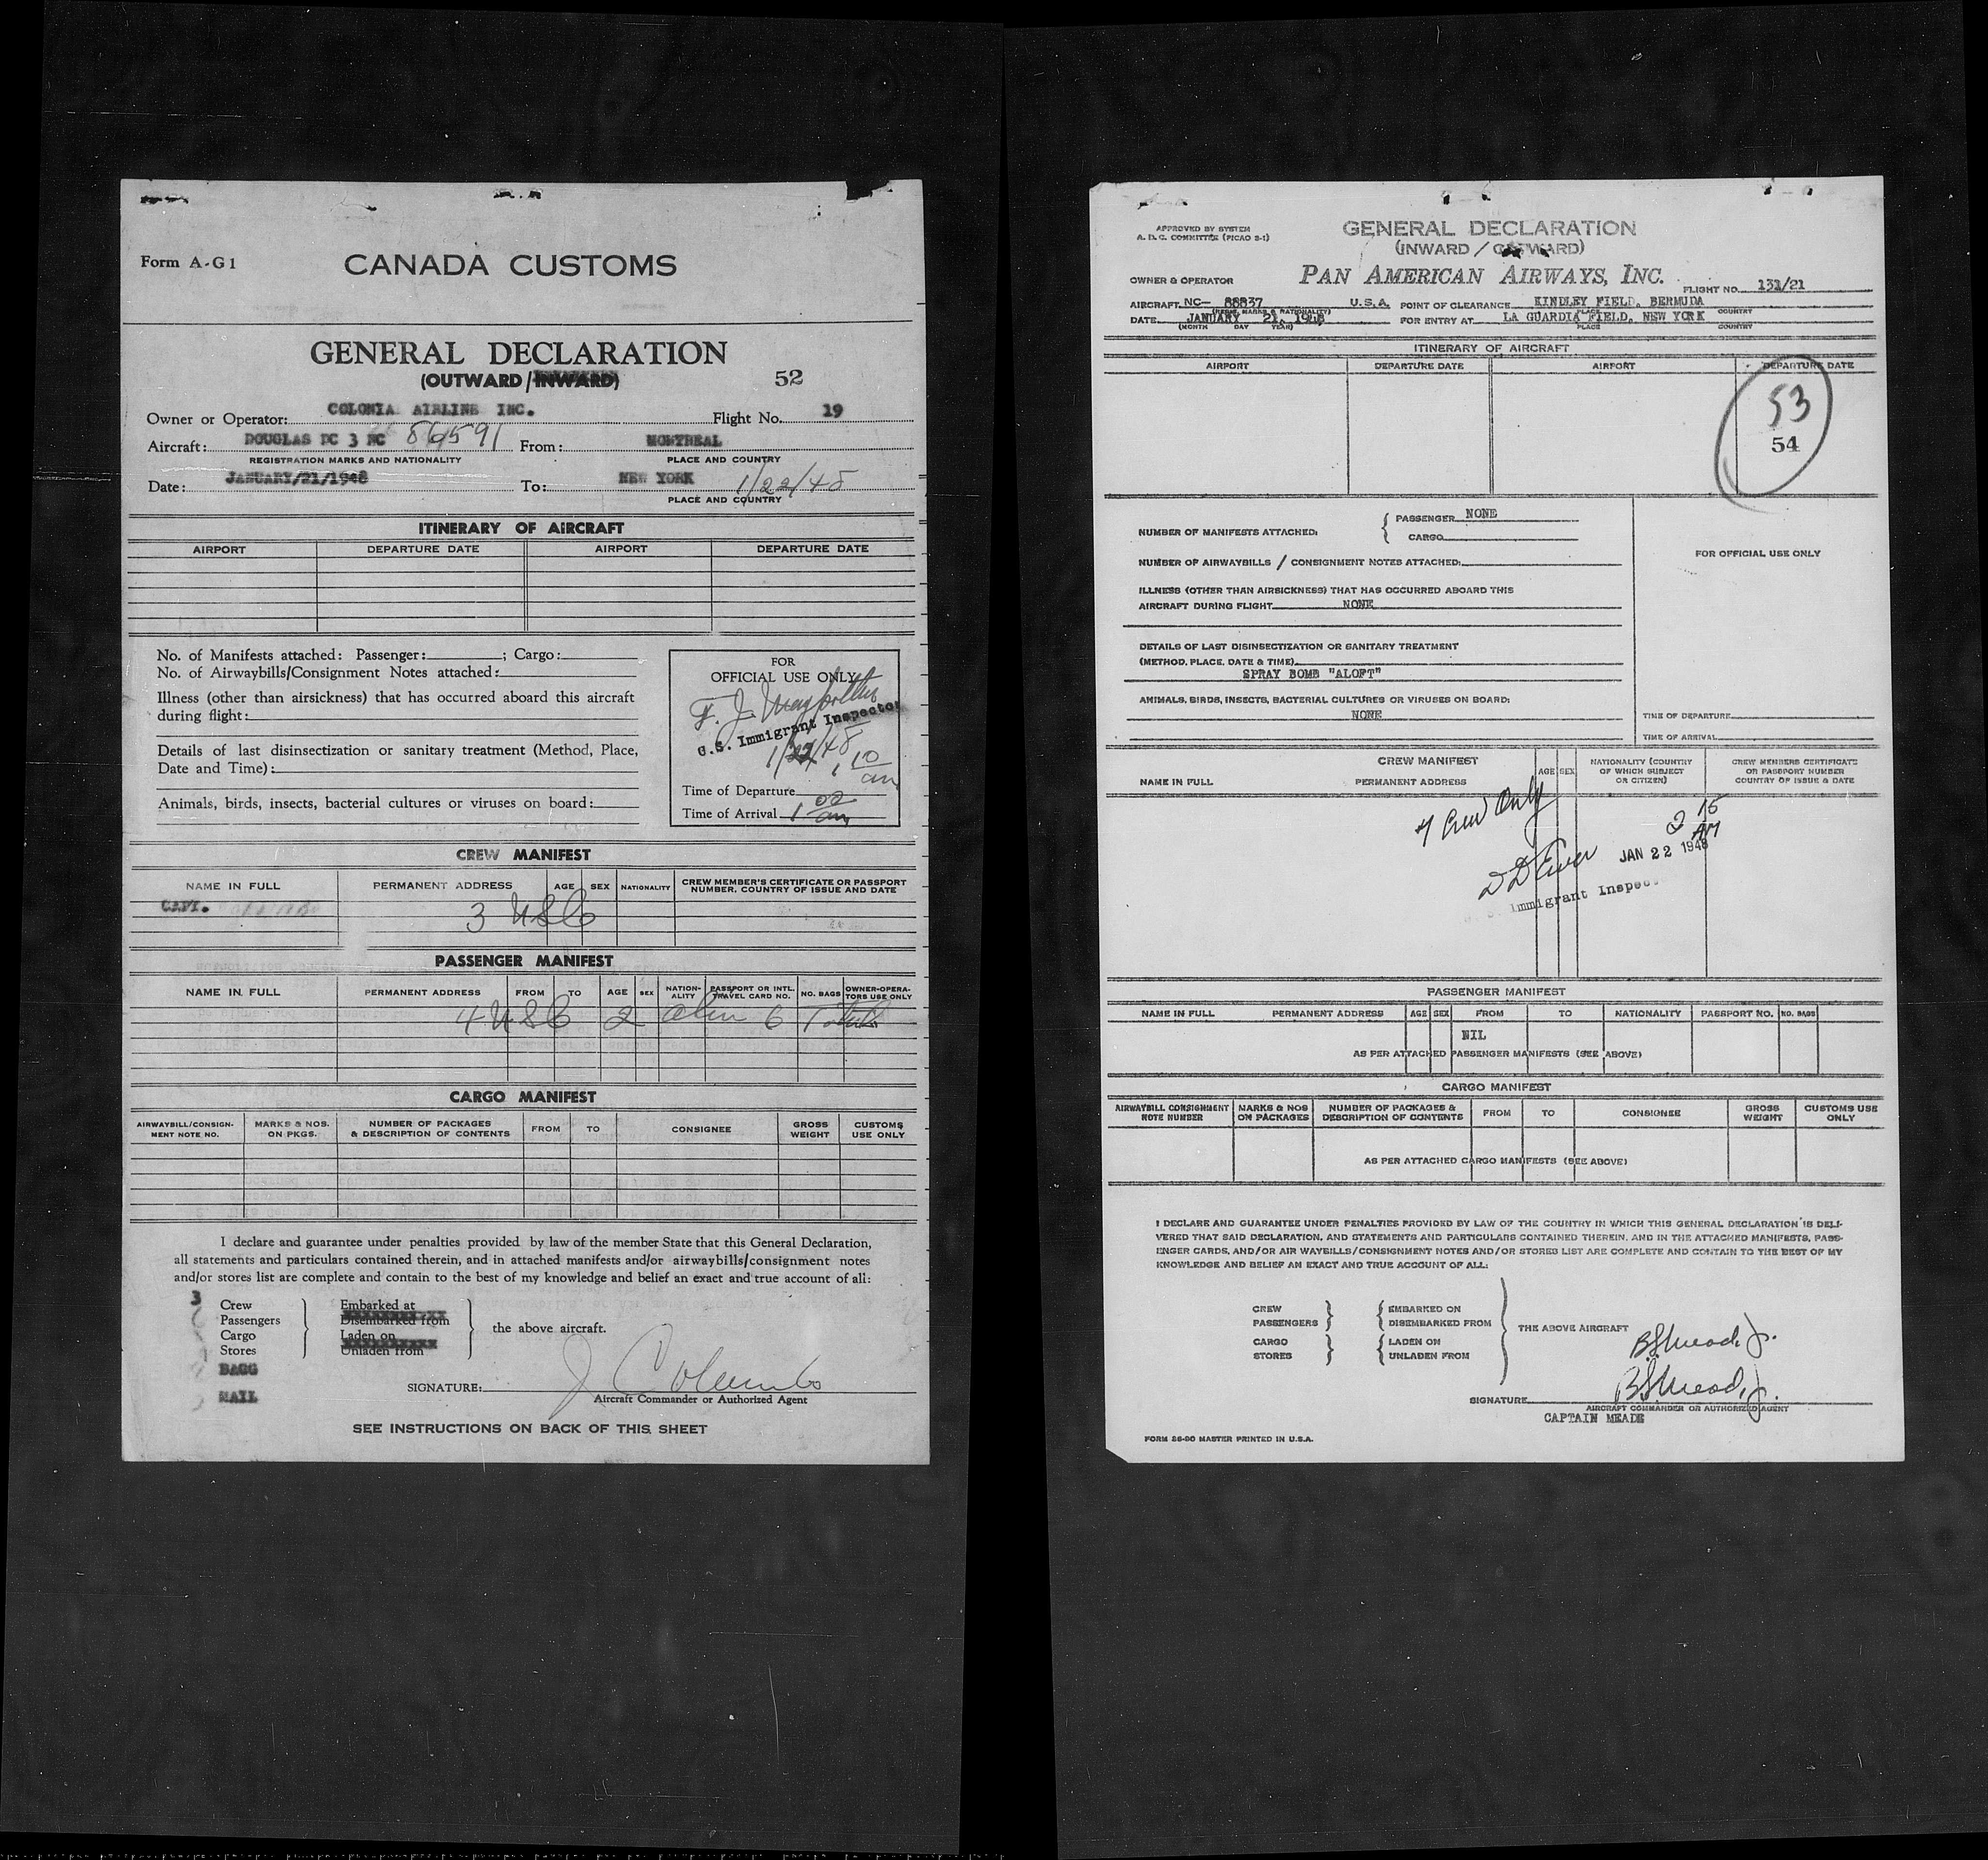 Form A-G1
CANADA CUSTOMS
GENERAL DECLARATION
(OUTWARD/INWARD)
52
Owner or Operator: COLONIA AIRLINE INC. Flight No. 19
Aircraft: DOUGLAS DC 3 NC 86591 From: MONTREAL
REGISTRATION MARKS AND NATIONALITY PLACE AND COUNTRY
Date: JANUARY/21/1948 To: NEW YORK 1/22/48
PLACE AND COUNTRY
ITINERARY OF AIRCRAFT
AIRPORT DEPARTURE DATE AIRPORT DEPARTURE DATE
No. of Manifests attached: Passenger: ; Cargo:
No. of Airwaybills/Consignment Notes attached:
Illness (other than airsickness) that has occurred aboard this aircraft
during flight:
Details of last disinsectization or sanitary treatment (Method, Place,
Date and Time):
Animals, birds, insects, bacterial cultures or viruses on board:
FOR
OFFICIAL USE ONLY
F. J.
U.S. Immigrant Inspector
1/22/48
1 10 am
Time of Departure
Time of Arrival 1 02 am
CREW MANIFEST
NAME IN FULL PERMANENT ADDRESS AGE SEX NATIONALITY CREW MEMBER'S CERTIFICATE OR PASSPORT
NUMBER, COUNTRY OF ISSUE AND DATE
CAPT.
3 USC
PASSENGER MANIFEST
NAME IN FULL PERMANENT ADDRESS FROM TO AGE SEX NATION-
ALITY PASSPORT OR INTL.
TRAVEL CARD NO. NO. BAGS OWNER-OPERA-
TORS USE ONLY
4 USC 2 alien 6 Total
CARGO MANIFEST
AIRWAYBILL/CONSIGN-
MENT NOTE NO. MARKS & NOS.
ON PKGS. NUMBER OF PACKAGES
& DESCRIPTION OF CONTENTS FROM TO CONSIGNEE GROSS
WEIGHT CUSTOMS
USE ONLY
I declare and guarantee under penalties provided by law of the member State that this General Declaration,
all statements and particulars contained therein, and in attached manifests and/or airwaybills/consignment notes
and/or stores list are complete and contain to the best of my knowledge and belief an exact and true account of all:
3 Crew Embarked at
Passengers Disembarked from
Cargo Laden on
Stores Unladen from
the above aircraft.
BAGG
MAIL
SIGNATURE: J Colombo
Aircraft Commander or Authorized Agent
SEE INSTRUCTIONS ON BACK OF THIS SHEET
APPROVED BY SYSTEM
A. D. C. COMMITTEE (PICAO S-1)
GENERAL DECLARATION
(INWARD / OUTWARD)
OWNER & OPERATOR PAN AMERICAN AIRWAYS, INC. FLIGHT NO. 131/21
AIRCRAFT NC- 88837 U.S.A. POINT OF CLEARANCE KINDLEY FIELD, BERMUDA
(REGIS. MARKS & NATIONALITY) PLACE COUNTRY
DATE JANUARY 21, 1948 FOR ENTRY AT LA GUARDIA FIELD, NEW YORK
(MONTH DAY YEAR) PLACE COUNTRY
ITINERARY OF AIRCRAFT
AIRPORT DEPARTURE DATE AIRPORT DEPARTURE DATE
53
54
NUMBER OF MANIFESTS ATTACHED: PASSENGER NONE
CARGO
NUMBER OF AIRWAYBILLS / CONSIGNMENT NOTES ATTACHED:
ILLNESS (OTHER THAN AIRSICKNESS) THAT HAS OCCURRED ABOARD THIS
AIRCRAFT DURING FLIGHT NONE
DETAILS OF LAST DISINSECTIZATION OR SANITARY TREATMENT
(METHOD, PLACE, DATE & TIME)
SPRAY BOMB "ALOFT"
ANIMALS, BIRDS, INSECTS, BACTERIAL CULTURES OR VIRUSES ON BOARD:
NONE
FOR OFFICIAL USE ONLY
TIME OF DEPARTURE
TIME OF ARRIVAL
CREW MANIFEST
NAME IN FULL PERMANENT ADDRESS AGE SEX NATIONALITY (COUNTRY
OF WHICH SUBJECT
OR CITIZEN) CREW MEMBERS CERTIFICATE
OR PASSPORT NUMBER
COUNTRY OF ISSUE & DATE
7 Crew Only
2 15 AM
JAN 22 1948
Immigrant Inspec
PASSENGER MANIFEST
NAME IN FULL PERMANENT ADDRESS AGE SEX FROM TO NATIONALITY PASSPORT NO. NO. BAGS
NIL
AS PER ATTACHED PASSENGER MANIFESTS (SEE ABOVE)
CARGO MANIFEST
AIRWAYBILL CONSIGNMENT
NOTE NUMBER MARKS & NOS
ON PACKAGES NUMBER OF PACKAGES &
DESCRIPTION OF CONTENTS FROM TO CONSIGNEE GROSS
WEIGHT CUSTOMS USE
ONLY
AS PER ATTACHED CARGO MANIFESTS (SEE ABOVE)
I DECLARE AND GUARANTEE UNDER PENALTIES PROVIDED BY LAW OF THE COUNTRY IN WHICH THIS GENERAL DECLARATION IS DELI-
VERED THAT SAID DECLARATION, AND STATEMENTS AND PARTICULARS CONTAINED THEREIN, AND IN THE ATTACHED MANIFESTS, PASS-
ENGER CARDS, AND/OR AIR WAYBILLS/CONSIGNMENT NOTES AND/OR STORED LIST ARE COMPLETE AND CONTAIN TO THE BEST OF MY
KNOWLEDGE AND BELIEF AN EXACT AND TRUE ACCOUNT OF ALL:
CREW EMBARKED ON
PASSENGERS DISEMBARKED FROM
CARGO LADEN ON
STORES UNLADEN FROM
THE ABOVE AIRCRAFT
BS Meade Jr.
SIGNATURE BS Meade Jr.
AIRCRAFT COMMANDER OR AUTHORIZED AGENT
CAPTAIN MEADE
FORM 86-90 MASTER PRINTED IN U.S.A.